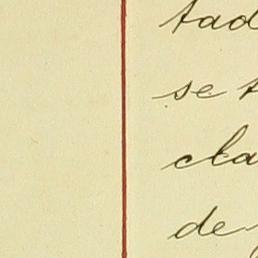 tad
se t
cla
de